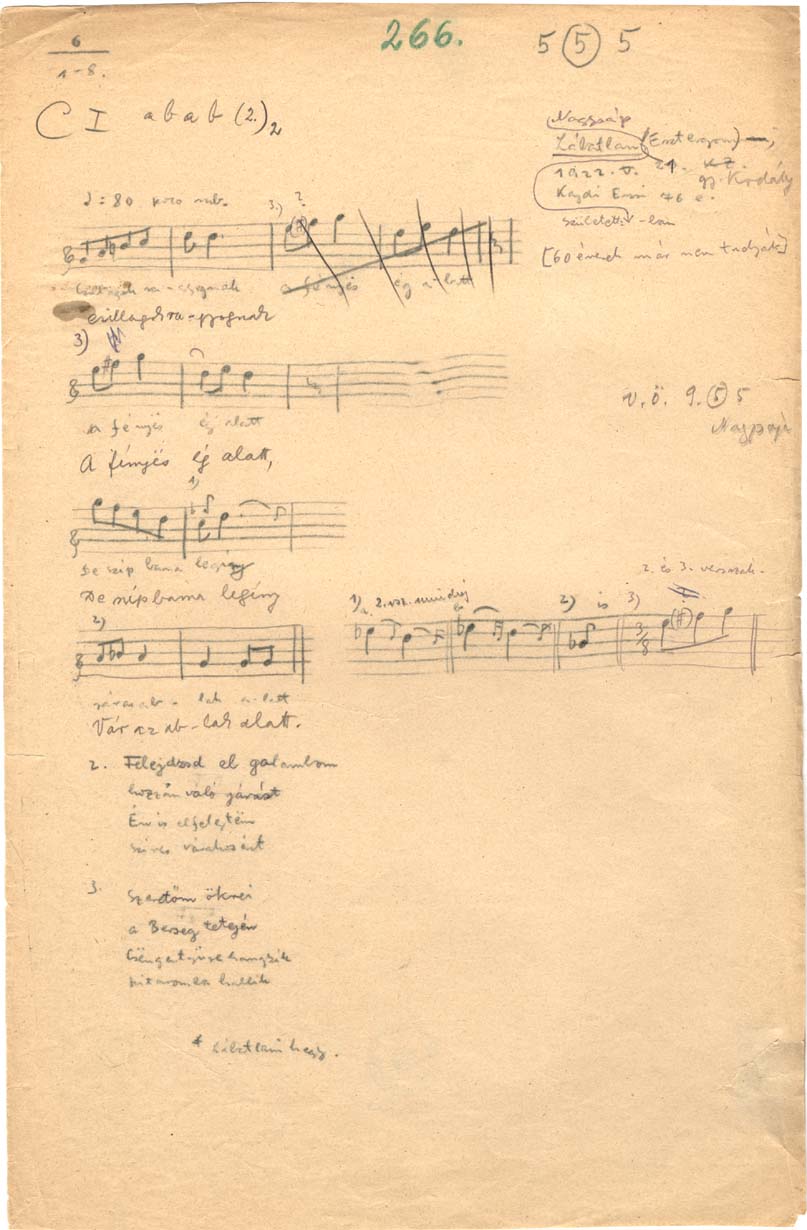 6
1-8.
266.
5 5 5
C I a b a b (2.)2
Nagysáp
Lábatlan (Esztergom)
1922. V. 21. KZ.
gy. Kodály
Kajdi Erzsi 76 é.
született -ban
[60 évesek már nem tudják]
♩= 80 poco rub.
3.) ?
Csillagok ra-gyognak a fényés ég a-latt
csillagok ra-gyognak
3)
a fényés ég alatt
A fényés ég alatt,
V. ö. 9. 5 5
1)
De szép barna legény
De szép barna legény
2. és 3. versszak.
1) a. 2. vsz. mindig b. 2) is 3)
3/8
2)
vár az ab-lak a-latt
Vár az ab-lak alatt.
2. Felejdzsd el galambom
hozzám való járást
Én is elfelejtém
szives várásodat
3. Szeretőm ökrei
a Berség tetején
Csengettyüje hangzik
* Lábatlani hegy.